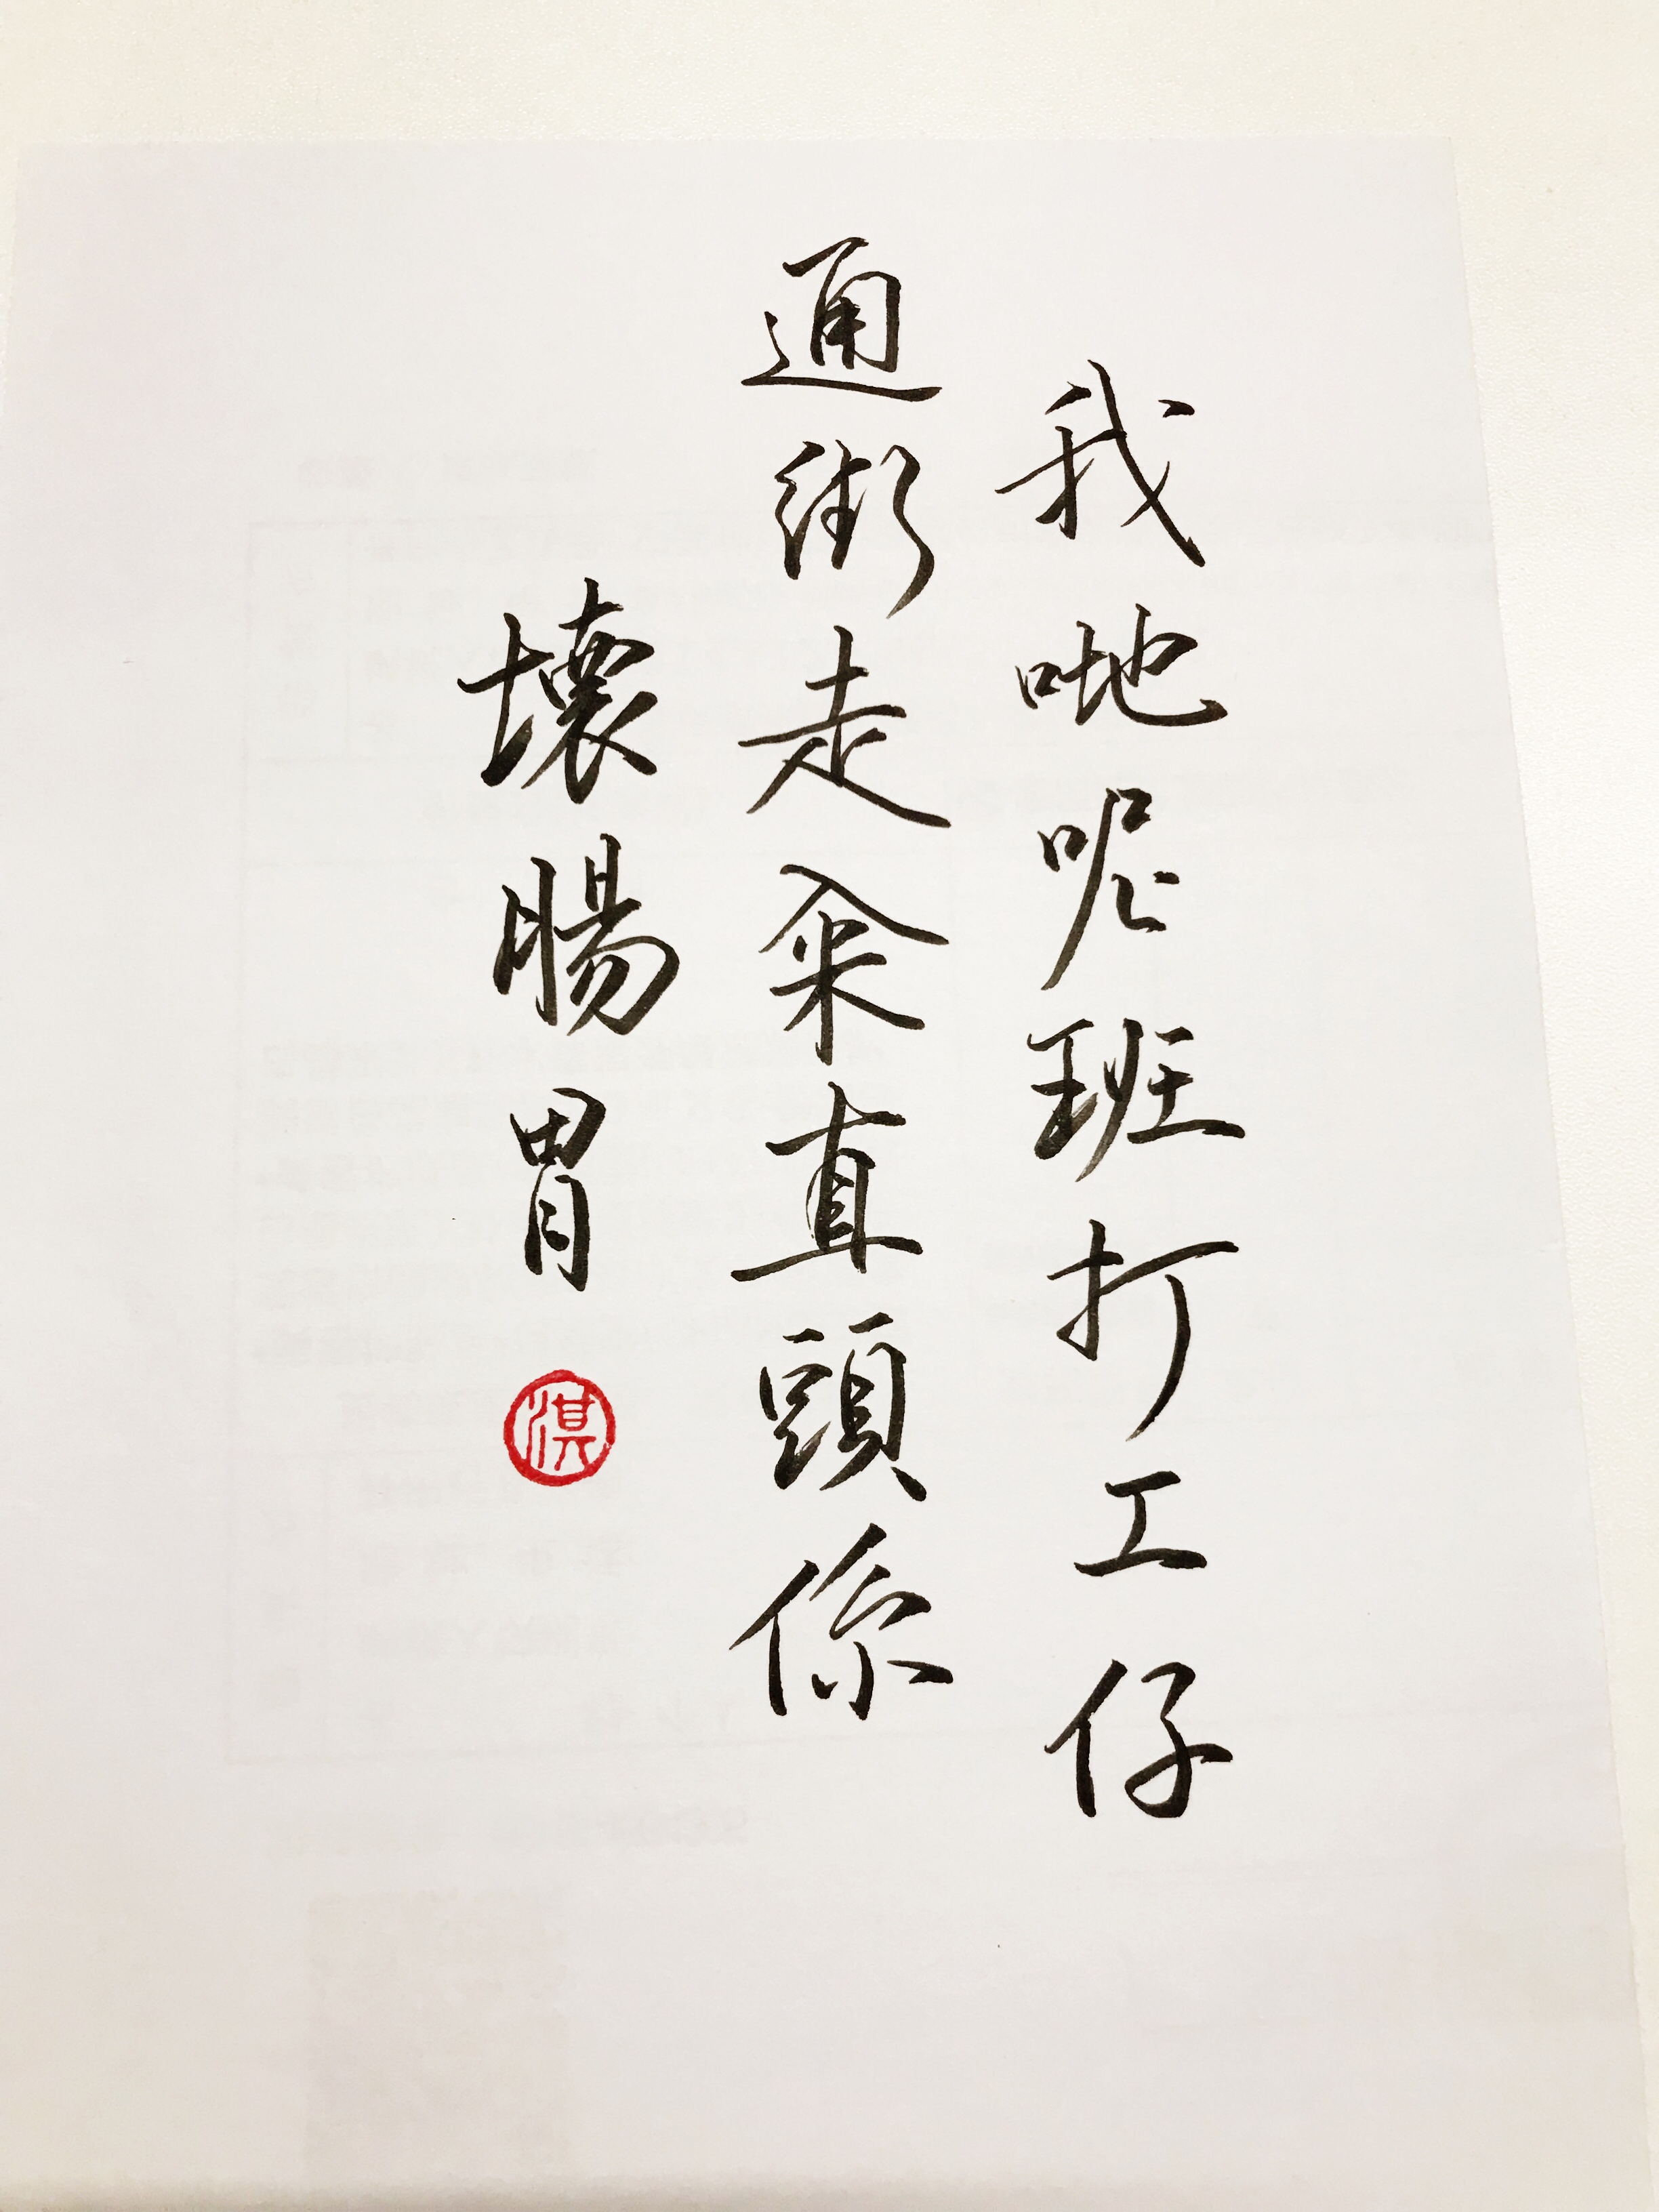 我哋呢班打工仔
通街走籴直頭係
壞腸胃
淇